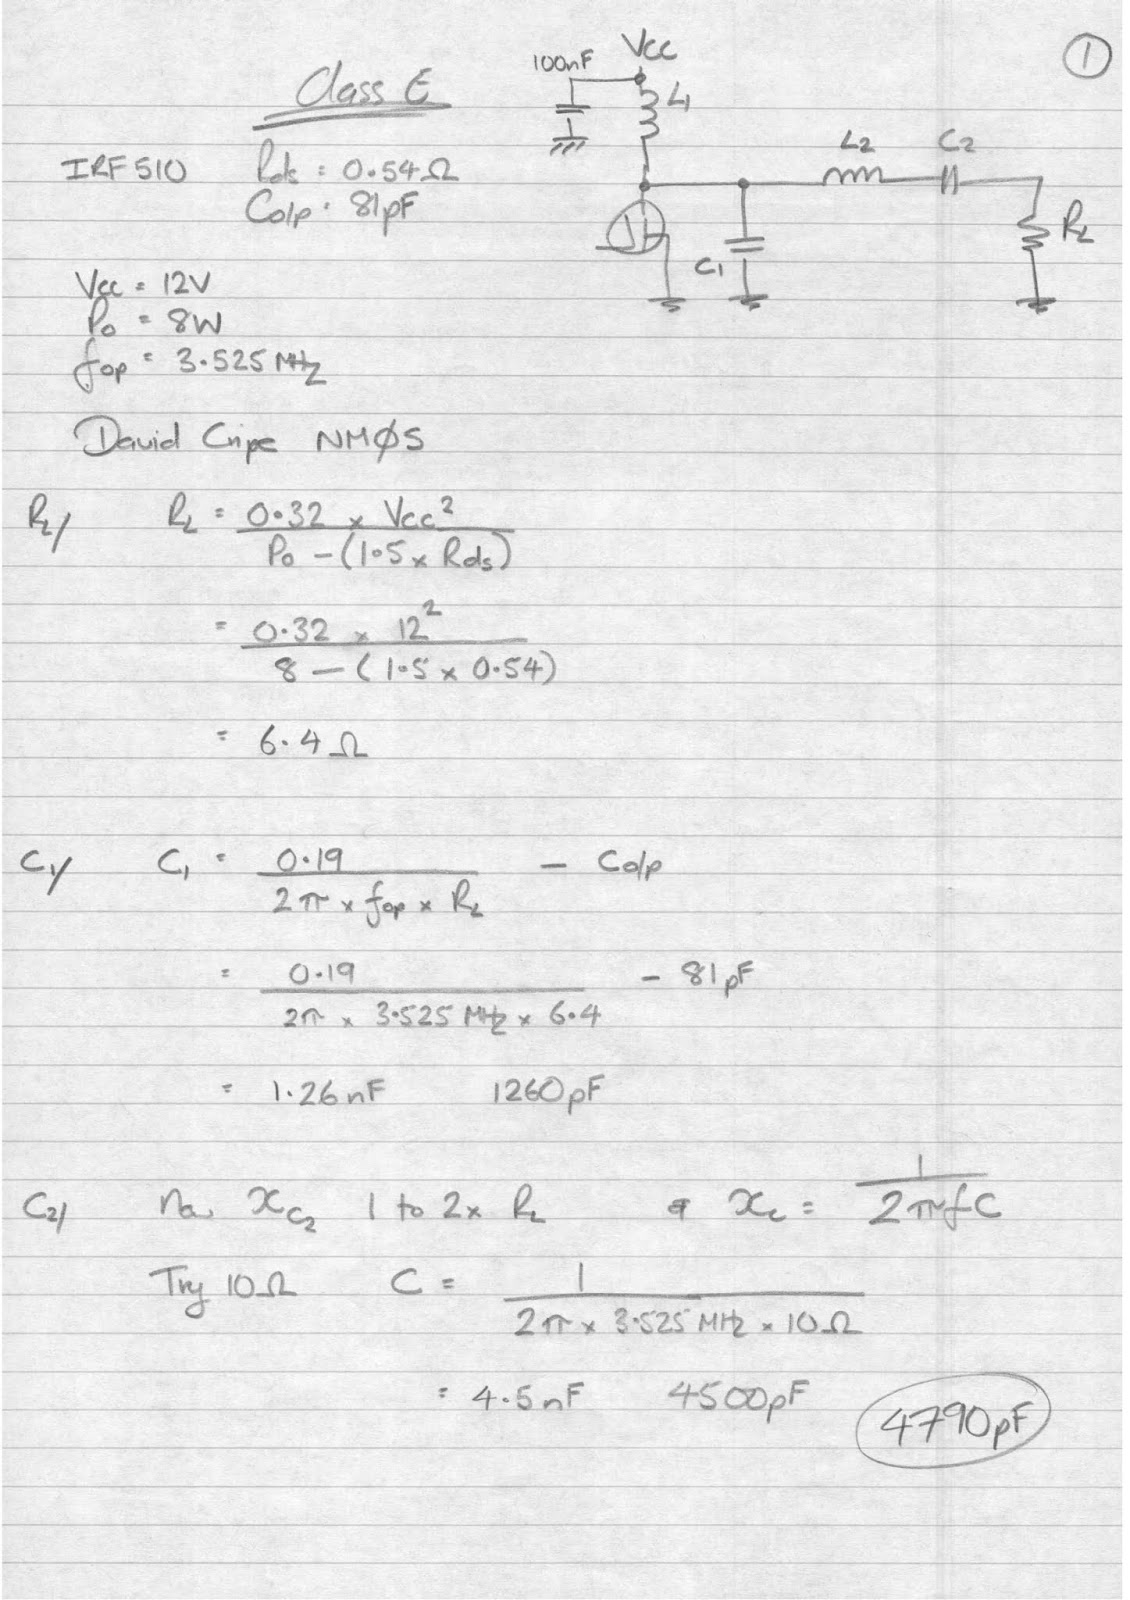 1
Class E
100nF
Vcc
L1
L2
C2
C1
RL
IRF510 Rds = 0.54Ω
Co/p = 81pF
Vcc = 12V
Po = 8W
fop = 3.525 MHz
David Cripe NMØS
RL/ RL = 0.32 × Vcc²
Po - (1.5 × Rds)
= 0.32 × 12²
8 - (1.5 × 0.54)
= 6.4Ω
C1/ C1 = 0.19 - Co/p
2π × fop × RL
= 0.19 - 81pF
2π × 3.525 MHz × 6.4
= 1.26nF 1260pF
C2/ XC2 1 to 2 × RL & Xc = 1
2πfC
Try 10Ω C = 1
2π × 3.525 MHz × 10Ω
= 4.5nF 4500pF
4790pF